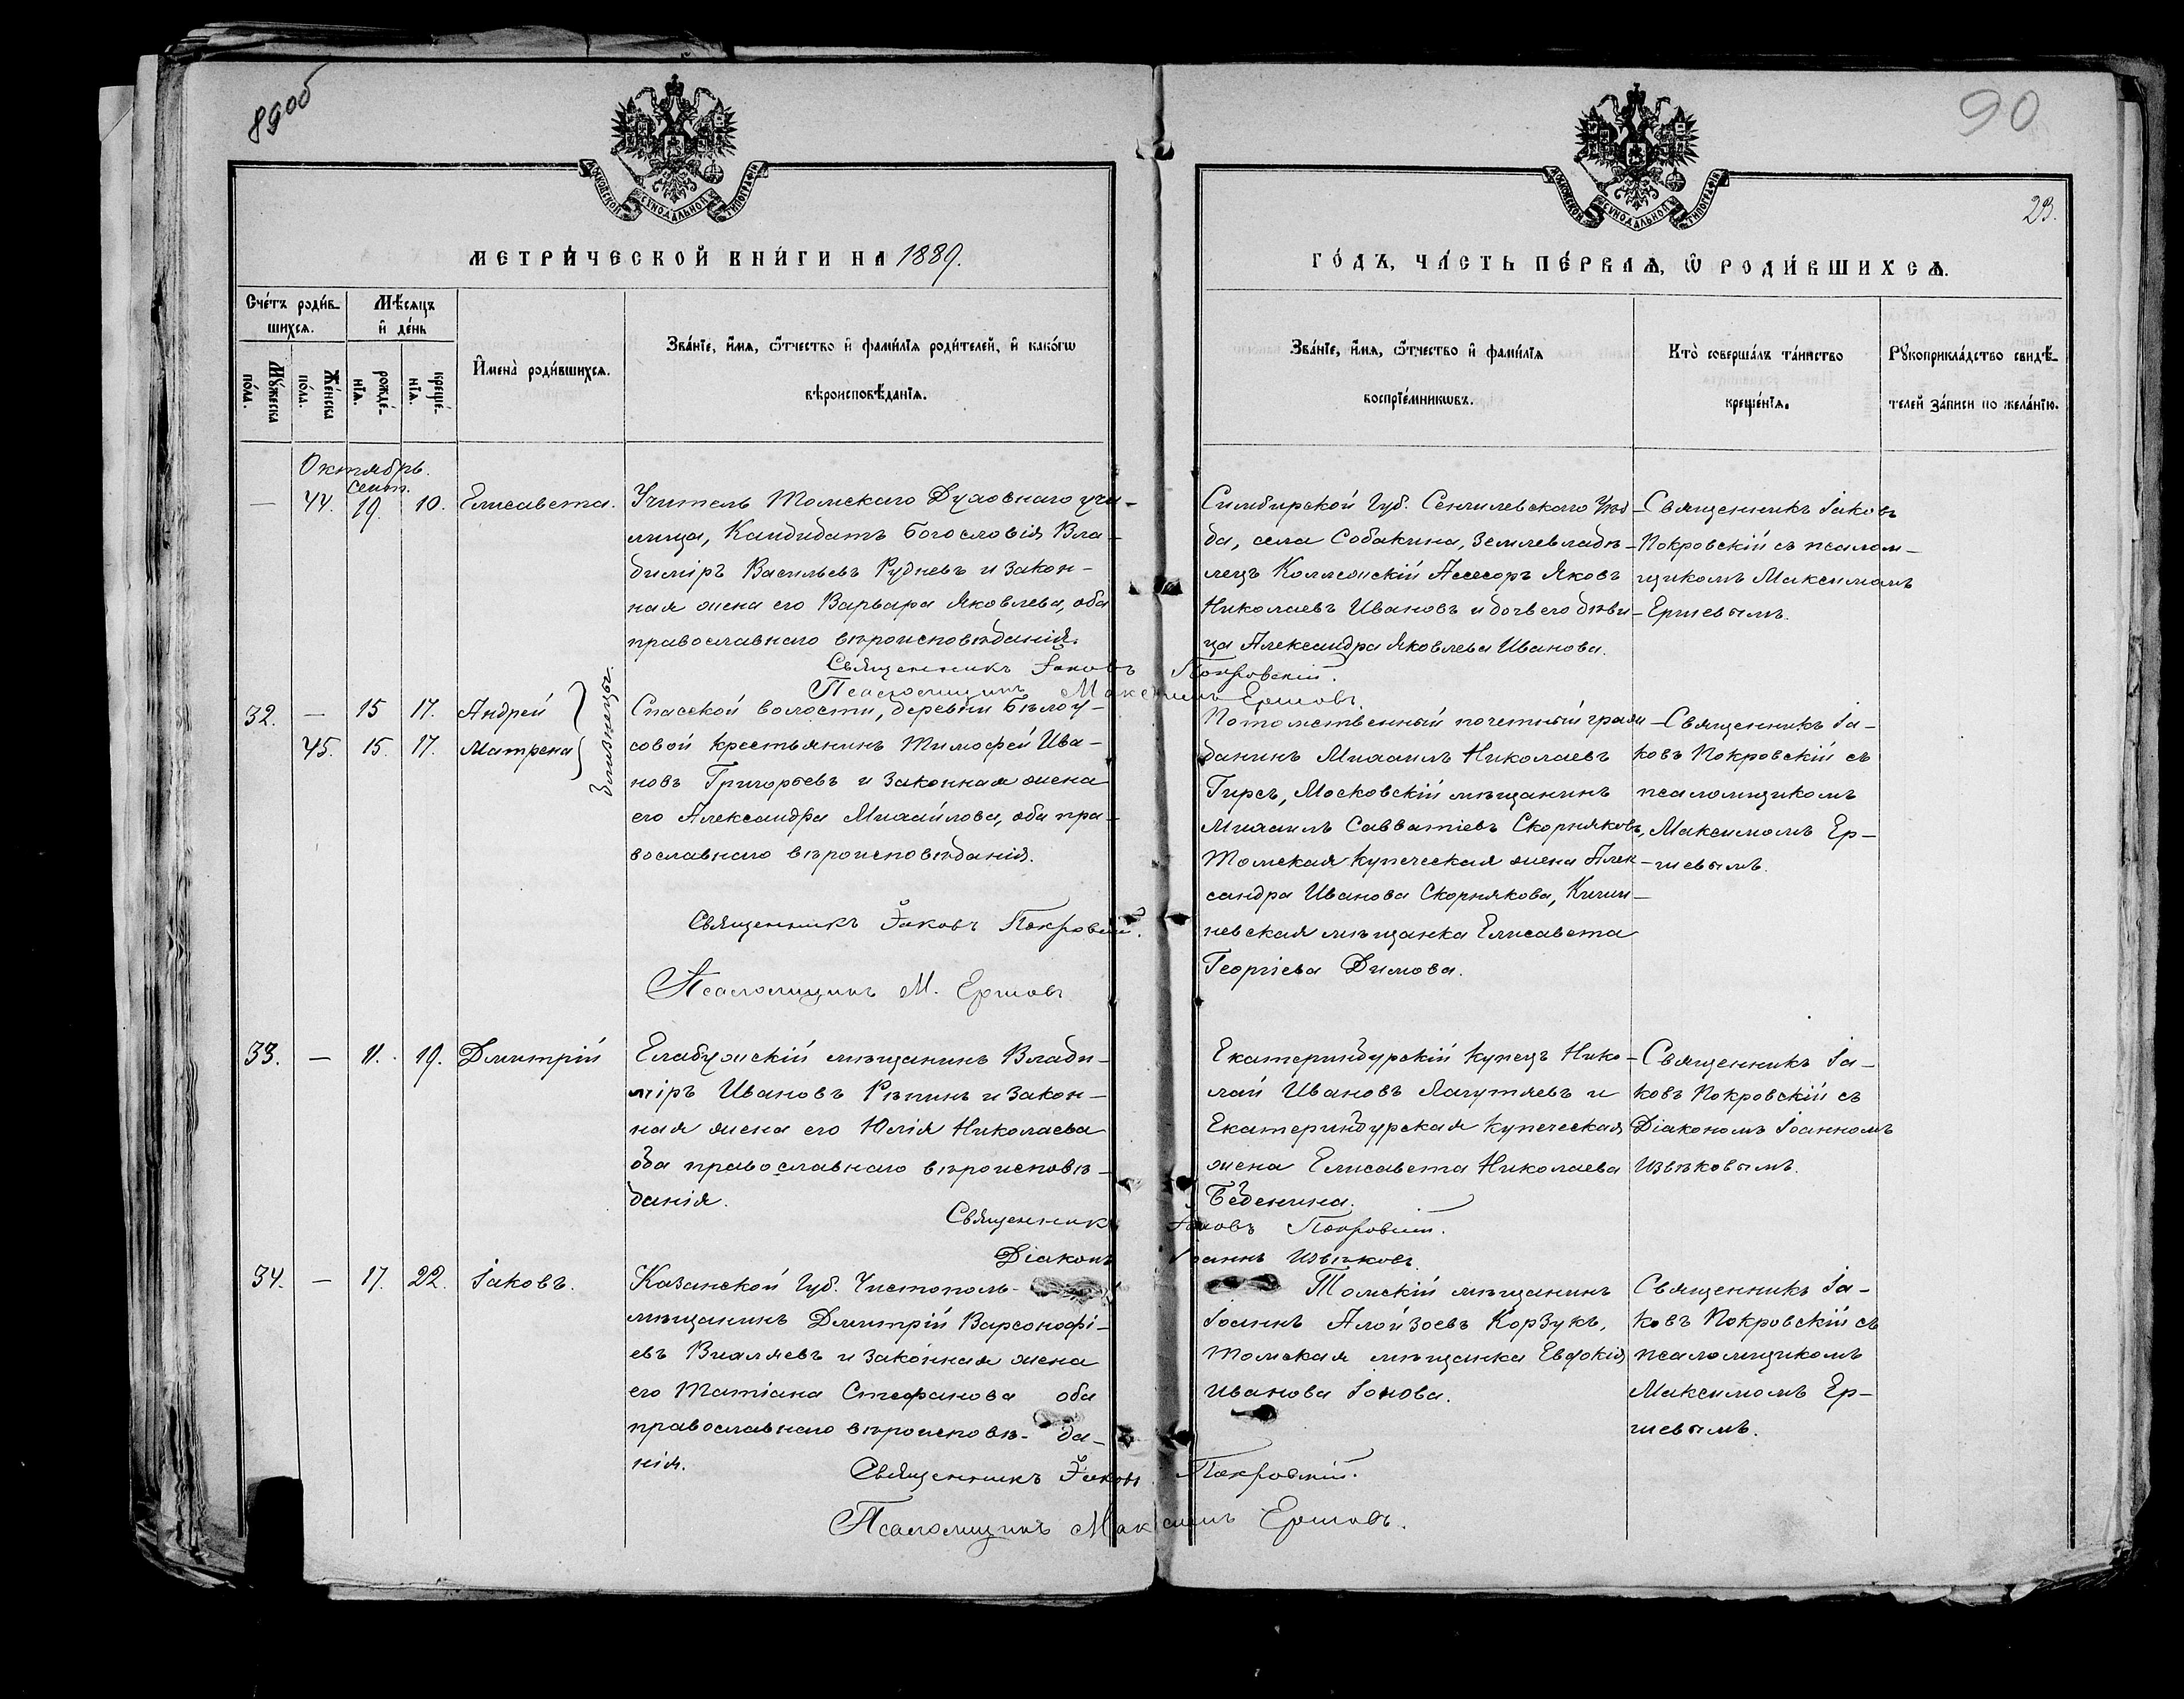 89об
90
23.
МОСКОВСКОЙ СѴНОДАЛЬНОЙ ТИПОГРАФІИ
МОСКОВСКОЙ СѴНОДАЛЬНОЙ ТИПОГРАФІИ
МЕТРИ́ЧЕСКОЙ КНИ́ГИ НА 1889.
Сче́тъ роди́в-
шихсѧ.
Мꙋ́жеска
по́ла.
Же́нска
по́ла.
Мѣ́сѧцъ
и҆ де́нь
рожде́-
нїѧ.
креще́-
нїѧ.
И҆мена̀ роди́вшихсѧ.
Зва́нїе, и҆́мѧ, ѻ҆́тчество и҆ фами́лїѧ роди́телей, и҆ како́гѡ
вѣроисповѣ́данїѧ.
Октябрь.
Сент.
— 44. 19. 10. Елисавета.
Учитель Томскаго Духовнаго учи-
лища, Кандидатъ богословія Вла-
диміръ Васильевъ Рудневъ и закон-
ная жена его Варвара Яковлева, оба
православнаго вѣроисповѣданія.
Священникъ Іаковъ Покровскій.
Псаломщикъ Максимъ Ершовъ.
32. — 15 17. Андрей
45. 15. 17. Матрена
близнецы.
Спасской волости, деревни Бѣлоу-
совой крестьянинъ Тимофей Ива-
новъ Григорьевъ и законная жена
его Александра Михайлова, оба пра-
вославнаго вѣроисповѣданія.
Священникъ Іаковъ Покровскій.
Псаломщикъ М. Ершовъ
33. — 11. 19. Дмитрій
Елабужскій мѣщанинъ Влади-
міръ Ивановъ Рѣпинъ и закон-
ная жена его Юлія Николаева
оба православнаго вѣроисповѣ-
данія.
Священникъ Іаковъ Покровскій.
Діаконъ Іоаннъ Извѣковъ.
34. — 17. 22. Іаковъ.
Казанской Губ. Чистополь-
мѣщанинъ Дмитрій Варсонофі-
евъ Вияляевъ и законная жена
его Татіана Стефанова оба
православнаго вѣроисповѣ- да-
нія.
Священникъ Іаковъ Покровскій.
Псаломщикъ Максимъ Ершовъ.
ГО́ДЪ, ЧА́СТЬ ПЕ́РВАѦ, Ѡ҆ РОДИ́ВШИХСѦ.
Зва́нїе, и҆́мѧ, ѻ҆́тчество и҆ фами́лїѧ
воспрїе́мникѡвъ.
Кто̀ соверша́лъ та́инство
креще́нїѧ.
Рꙋкоприкла́дство свидѣ́-
телей за́писи по жела́нїю.
Симбирской Губ. Сенгилевскаго Уѣз-
да, села Собакина, землевладѣ-
лецъ Коллежскій Асесоръ Яковъ
Николаевъ Ивановъ и дочь его дѣви-
ца Александра Яковлева Иванова.
Священникъ Іаковъ
Покровскій съ псалом-
щикомъ Максимомъ
Ершевымъ.
Потомственный почетный граж-
данинъ Михаилъ Николаевъ
Гирсъ, Московскій мѣщанинъ
Михаилъ Савватіевъ Скорняковъ,
Томская купеческая жена Алек-
сандра Иванова Скорнякова, Киши-
невская мѣщанка Елисавета
Георгіева Димова.
Священникъ Іа-
ковъ Покровскій съ
псаломщикомъ
Максимомъ Ер-
шевымъ.
Екатеринбурскій купецъ Нико-
лай Ивановъ Лагутяевъ и
Екатеринбурская купеческая
жена Елисавета Николаева
Беденина.
Священникъ Іа-
ковъ Покровскій съ
Діакономъ Іоанномъ
Извѣковымъ.
Томскій мѣщанинъ
Іоаннъ Алойзоевъ Корзукъ,
Томская мѣщанка Евдокія
Иванова Іонова.
Священникъ Іа-
ковъ Покровскій съ
псаломщикомъ
Максимомъ Ер-
шевымъ.